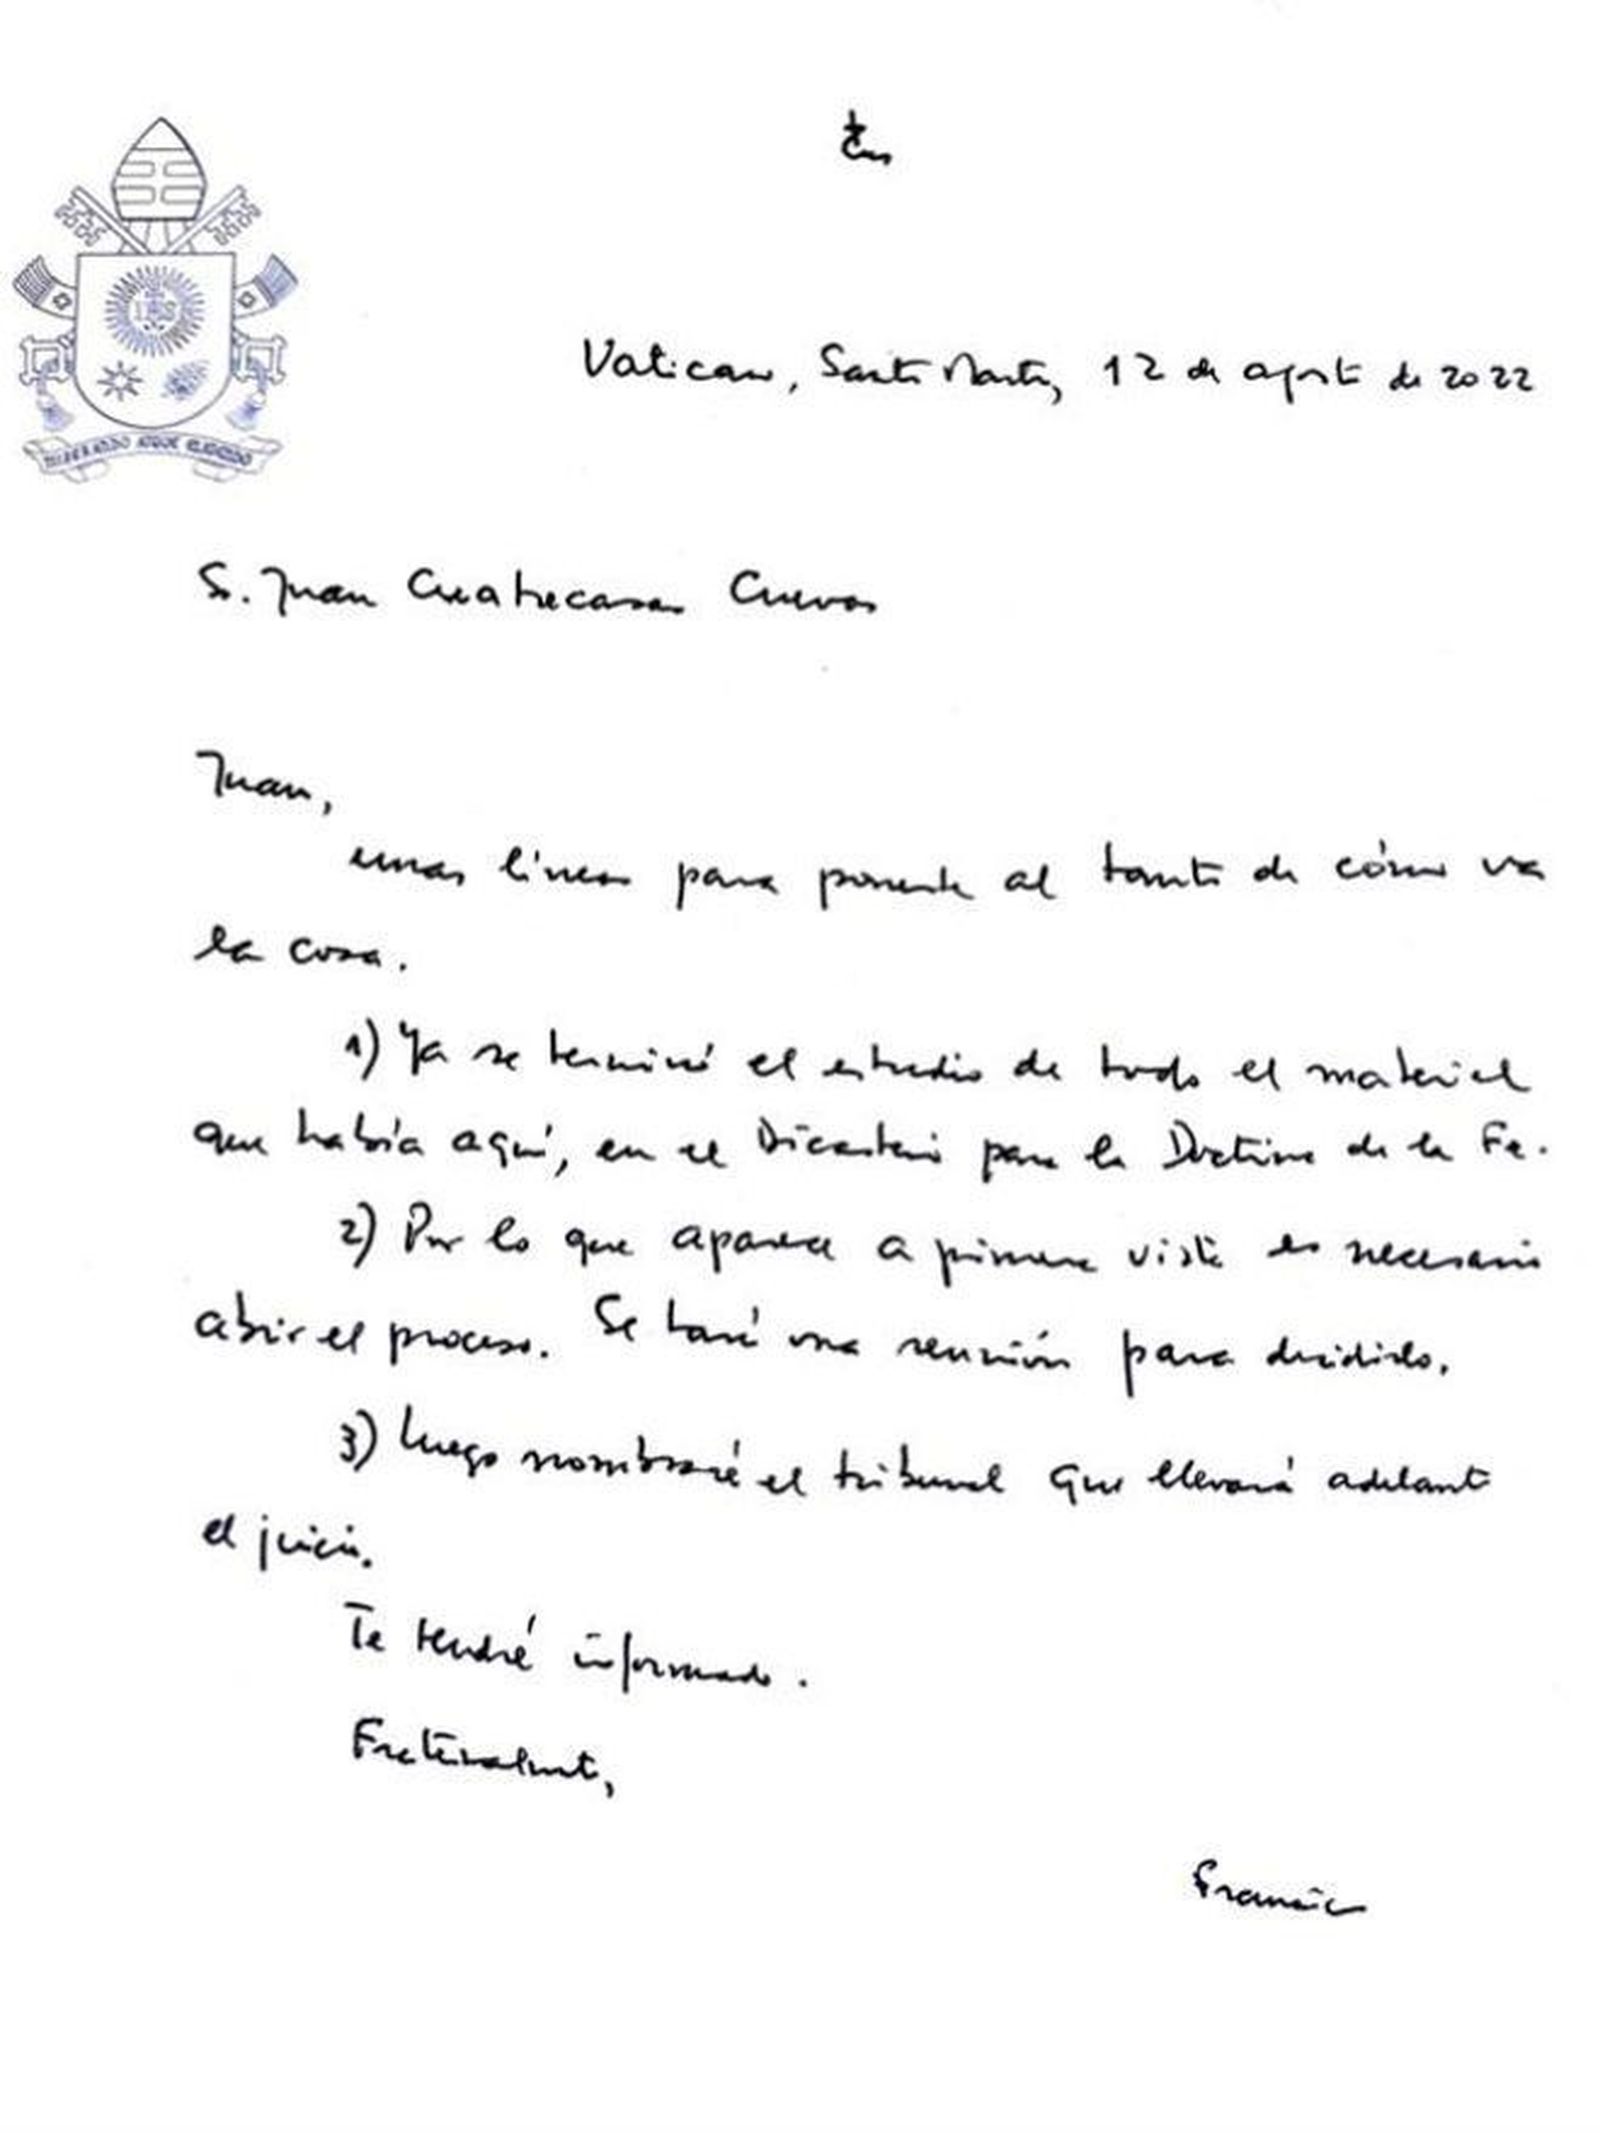 IHS
MISERANDO ATQUE ELIGENDO
Vaticano, Santa Marta, 12 de agosto de 2022
S. Juan Cuatrecasas Cuevas
Juan,
unas líneas para ponerte al tanto de cómo va
la cosa.
1) Ya se terminó el estudio de todo el material
que había aquí, en el Dicasterio para la Doctrina de la Fe.
2) Por lo que aparece a primera vista es necesario
abrir el proceso. Se hará una reunión para decidirlo.
3) Luego nombraré el tribunal que llevará adelante
el juicio.
Te tendré informado.
Fraternalmente,
Francisco